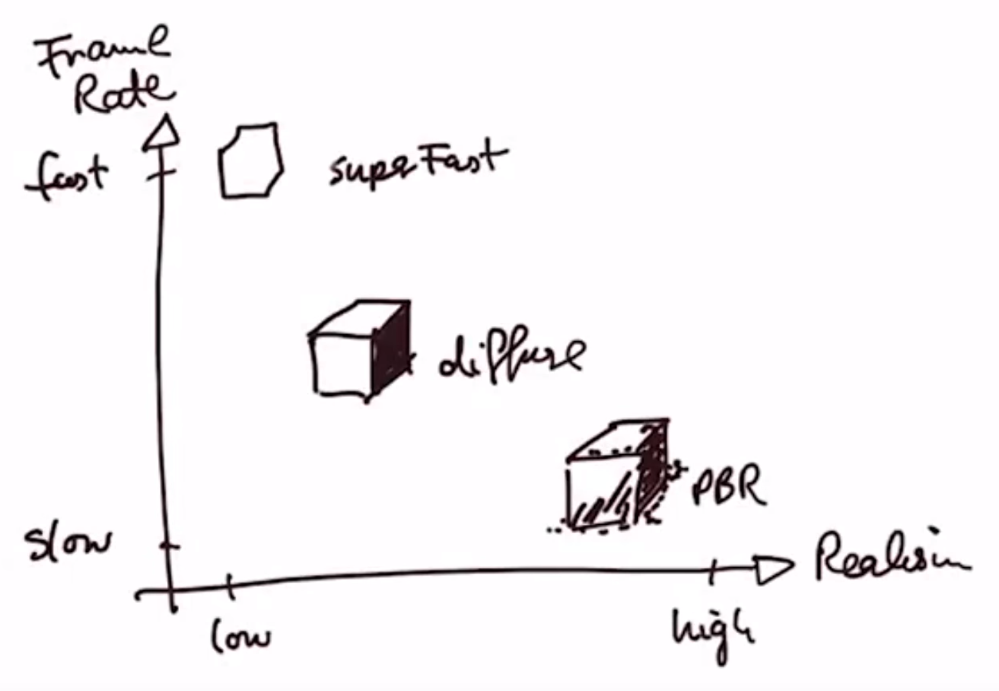 Frame
Rate
fast
superFast
diffuse
PBR
slow
Realism
low
high